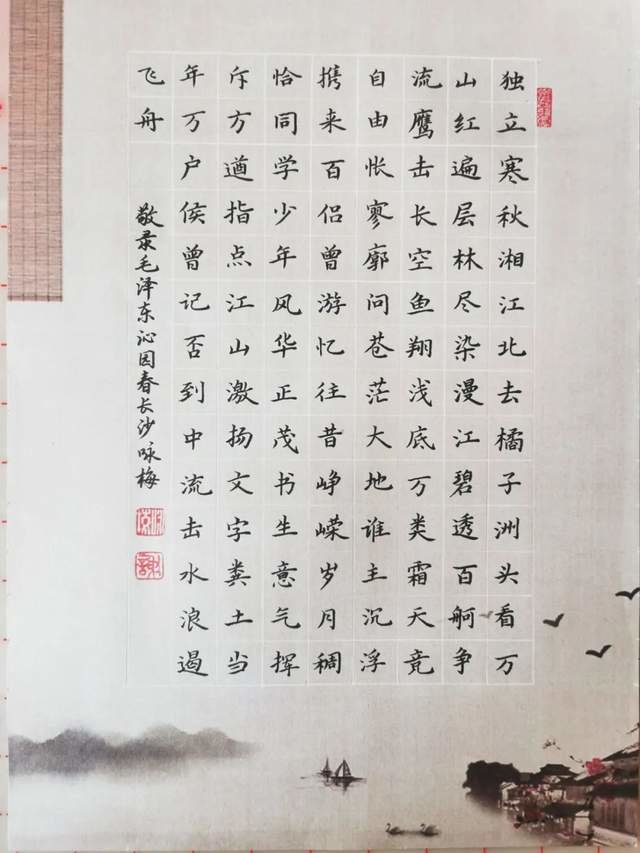 独立寒秋湘江北去橘子洲头看万
山红遍层林尽染漫江碧透百舸争
流鹰击长空鱼翔浅底万类霜天竞
自由怅寥廓问苍茫大地谁主沉浮
携来百侣曾游忆往昔峥嵘岁月稠
恰同学少年风华正茂书生意气挥
斥方遒指点江山激扬文字粪土当
年万户侯曾记否到中流击水浪遏
飞舟
敬录毛泽东沁园春长沙咏梅